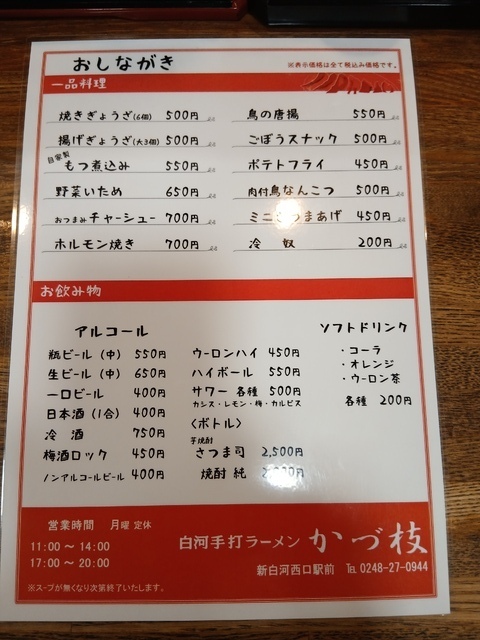 おしながき
※表示価格は全て税込み価格です。
一品料理
焼きぎょうざ(6個) 500円
揚げぎょうざ(大3個) 500円
自家製 もつ煮込み 550円
野菜いため 650円
おつまみチャーシュー 700円
ホルモン焼き 700円
鳥の唐揚 550円
ごぼうスナック 500円
ポテトフライ 450円
肉付鳥なんこつ 500円
ミニさつまあげ 450円
冷 奴 200円
お飲み物
アルコール
瓶ビール (中) 550円
生ビール (中) 650円
一口ビール 400円
日本酒 (1合) 400円
冷 酒 750円
梅酒ロック 450円
ノンアルコールビール 400円
ウーロンハイ 450円
ハイボール 550円
サワー 各種 500円
カシス・レモン・梅・カルピス
〈ボトル〉
芋焼酎
さつま司 2,500円
焼酎 純
ソフトドリンク
・コーラ
・オレンジ
・ウーロン茶
各種 200円
営業時間 月曜 定休
11:00 〜 14:00
17:00 〜 20:00
※スープが無くなり次第終了いたします。
白河手打ラーメン かづ枝
新白河西口駅前 ℡ 0248-27-0944